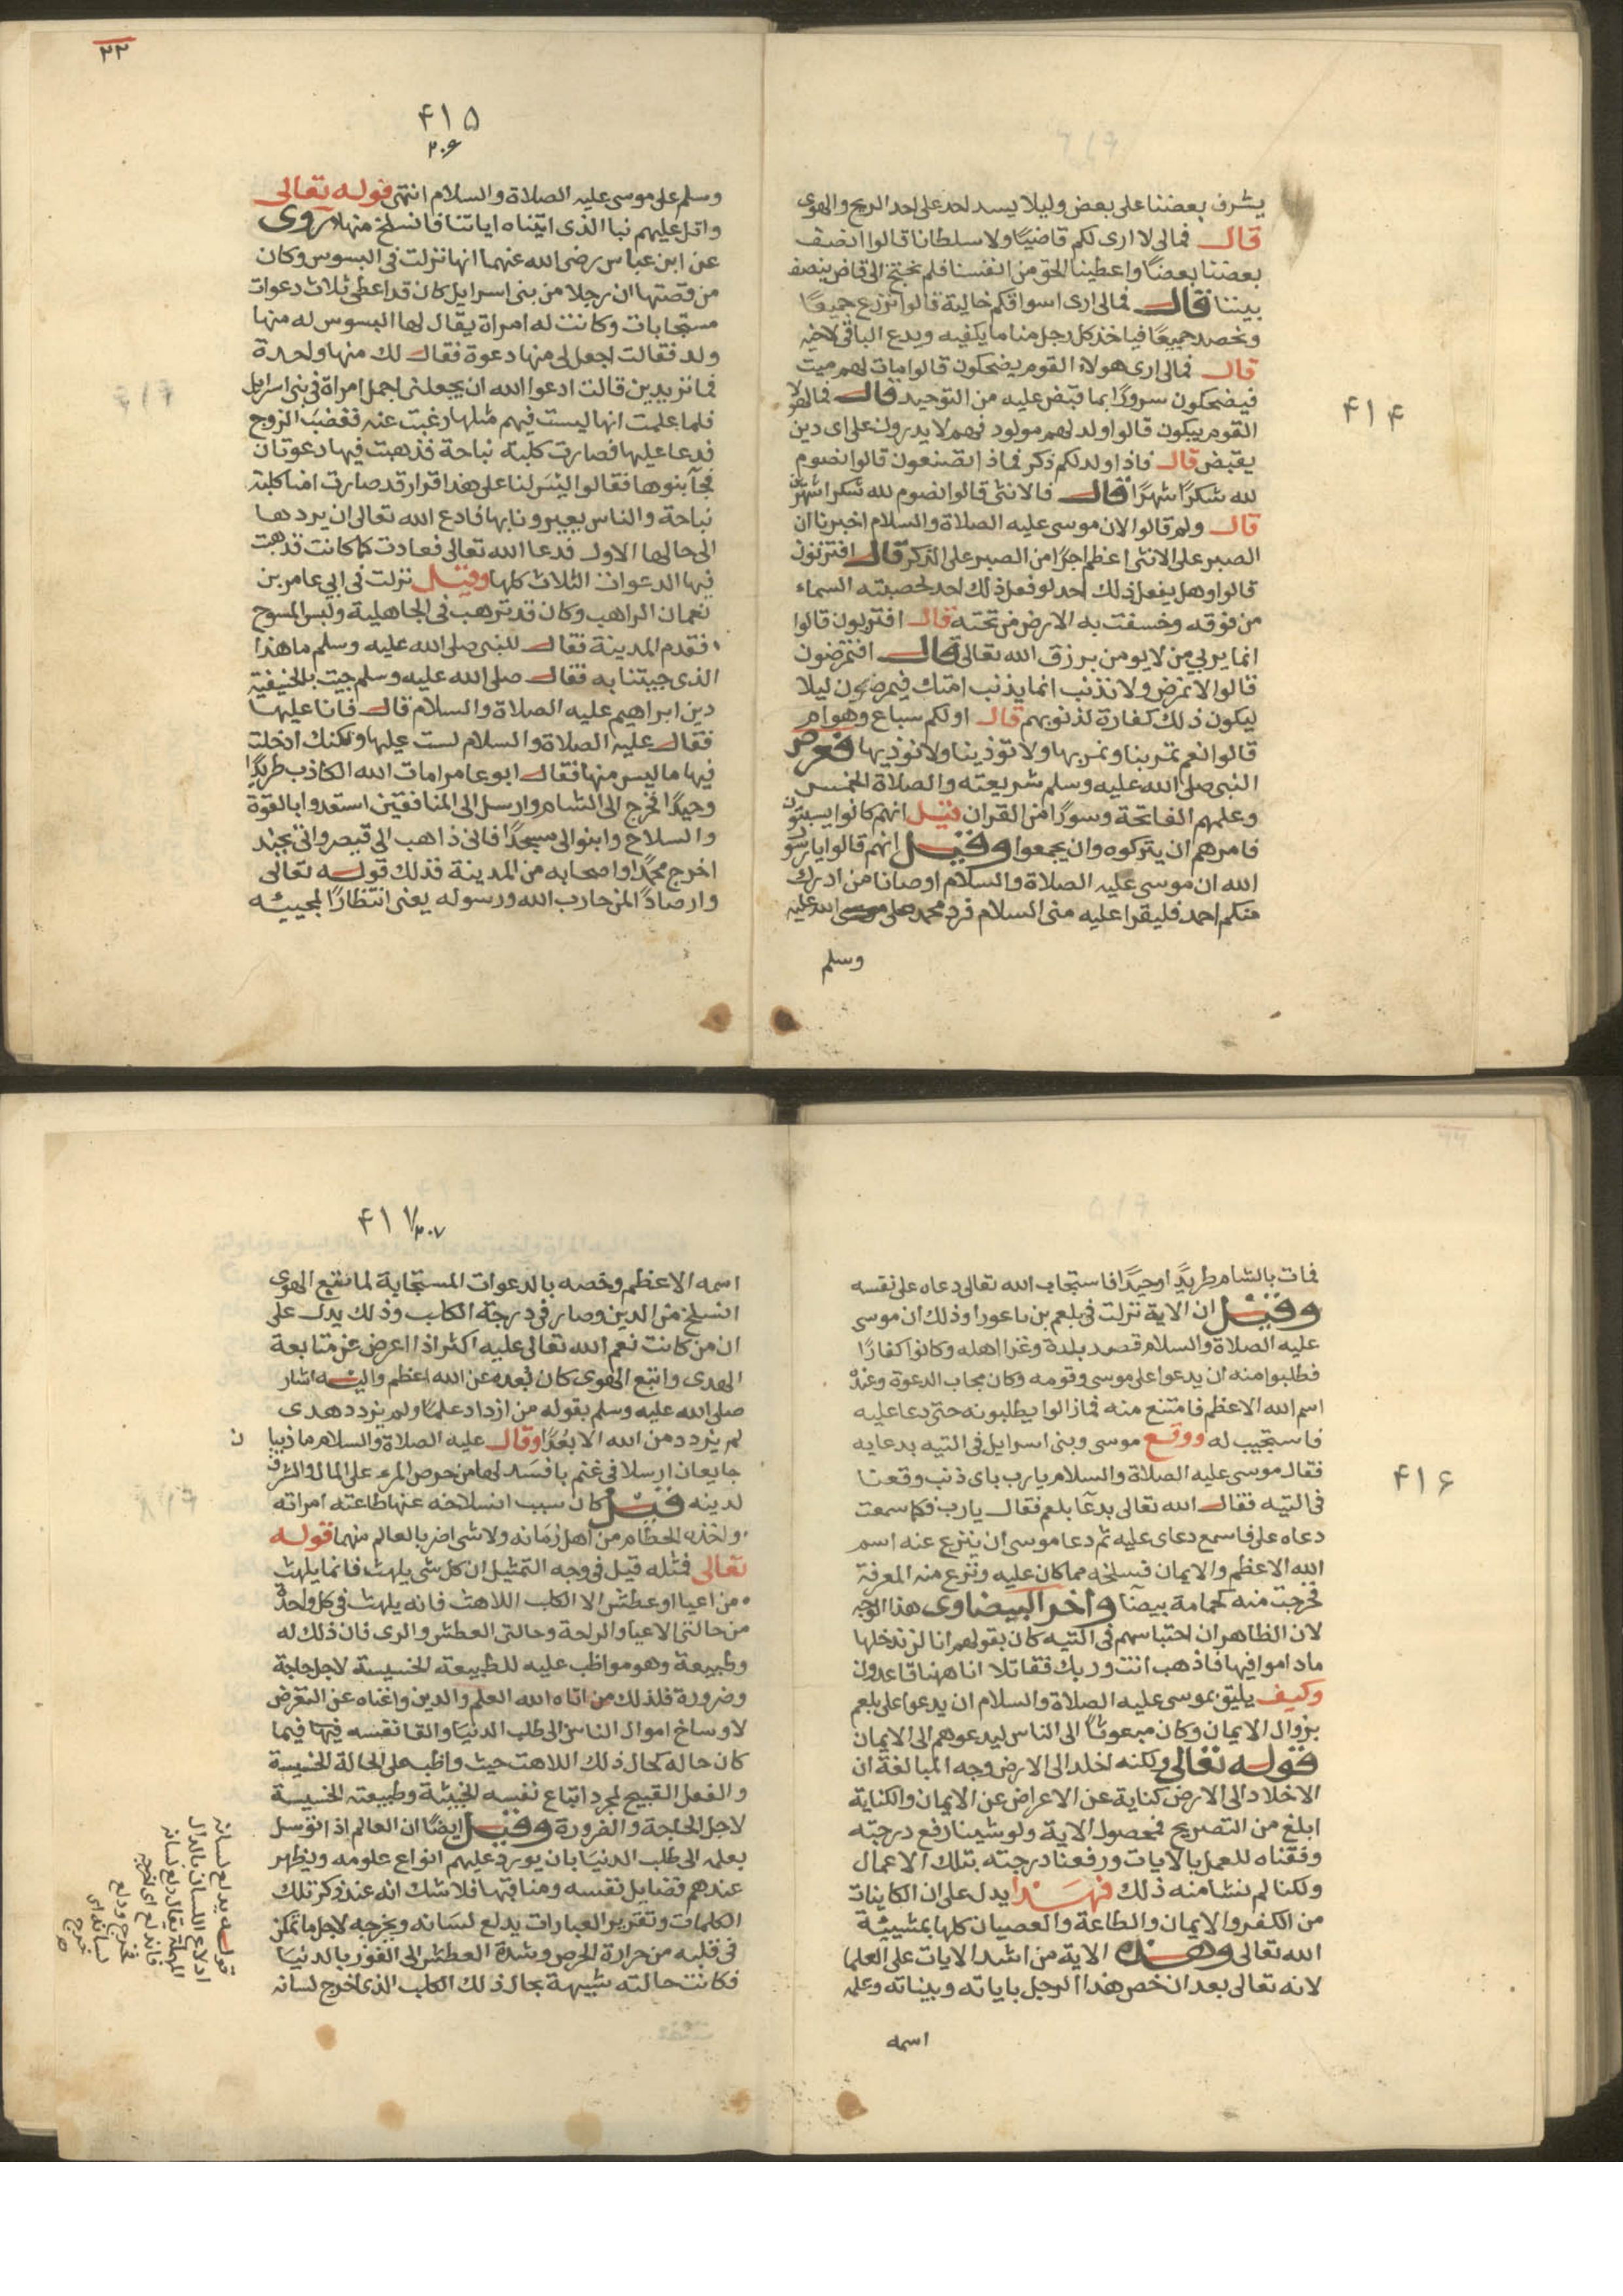 ۴۱۴
يشرف بعضنا على بعض وليلا يسد احد على احد الريح والهوى
قال فمالى لا ارى لكم قاضيًا ولا سلطانا قالوا انصف
بعضنا بعضًا واعطينا الحق من انفسنا فلم نحتج الى قاض ينصف
بيننا فقال فمالى ارى اسواقكم خالية قالوا نزرع جميعًا
ونحصد جميعًا فياخذ كل رجل منا ما يكفيه ويدع الباقى لاخيه
قال فمالى ارى هولاء القوم يضحكون قالوا مات لهم ميت
فيضحكون سرورًا بما قبض عليه من التوحيد قال فما لهولا
القوم يبكون قالوا ولد لهم مولود فهم لا يدرون على اى دين
يقبض قال فاذا ولد لكم ذكر فماذا تصنعون قالوا نصوم
لله شكرًا شهرًا قال فالانثى قالوا نصوم لله شكرا شهرين
قال ولم قالوا لان موسى عليه الصلاة والسلام اخبرنا ان
الصبر على الانثى اعظم اجرًا من الصبر على الذكر قال افتزنون
قالوا وهل يفعل ذلك احد لو فعل ذلك احد لحصبته السماء
من فوقه وخسفت به الارض من تحته قال افتربون قالوا
انما يربي من لا يومن برزق الله تعالى قال افتمرضون
قالوا لا نمرض ولا نذنب انما يذنب امتك فيمرضون ليلا
ليكون ذلك كفارة لذنوبهم قال اولكم سباع وهوام
قالوا نعم تمر بنا ونمر بها ولا تؤذينا ولا نوذيها فعرض
النبى صلى الله عليه وسلم شريعته والصلاة الخمس
وعلمهم الفاتحة وسورًا من القران قيل انهم كانوا يسبتون
فامرهم ان يتركوه وان يجمعوا وقيل انهم قالوا يا رسول
الله ان موسى عليه الصلاة والسلام اوصانا من ادرك
منكم احمد فليقرا عليه منى السلام فرد محمد صلى الله عليه
وسلم
۲۲
۴۱۵
۲۰۶
وسلم على موسى عليه الصلاة والسلام انتهى قوله تعالى
واتل عليهم نبا الذى اتيناه اياتنا فانسلخ منها روى
عن ابن عباس رضى الله عنهما انها نزلت فى البسوس وكان
من قصتها ان رجلا من بنى اسرايل كان قد اعطى ثلاث دعوات
مستجابات وكانت له امراة يقال لها البسوس له منها
ولد فقالت اجعل لى منها دعوة فقال لك منها واحدة
فما تريدين قالت ادعوا الله ان يجعلنى اجمل امراة فى بنى اسرايل
فلما علمت انها ليست فيهم مثلها رغبت عنه فغضب الزوج
فدعا عليها فصارت كلبة نباحة فذهبت فيها دعوتان
فجآ بنوها فقالوا ليس لنا على هذا قرار قد صارت امنا كلبة
نباحة والناس يعيرونا بها فادع الله تعالى ان يردها
الى حالها الاول فدعا الله تعالى فعادت كما كانت فذهبت
فيها الدعوات الثلاث كلها وقيل نزلت فى ابي عامر بن
نعمان الراهب وكان قد ترهب فى الجاهلية ولبس المسوح
فقدم المدينة فقال للنبى صلى الله عليه وسلم ما هذا
الذى جيتنا به فقال صلى الله عليه وسلم جيت بالحنيفية
دين ابراهيم عليه الصلاة والسلام قال فانا عليها
فقال عليه الصلاة والسلام لست عليها ولكنك ادخلت
فيها ما ليس منها فقال ابو عامر امات الله الكاذب طريدًا
وحيدًا فخرج الى الشام وارسل الى المنافقين استعدوا بالقوة
والسلاح وابنوا لى مسجدًا فانى ذاهب الى قيصر واتى بجند
اخرج محمدًا واصحابه من المدينة فذلك قوله تعالى
وارصادًا لمن حارب الله ورسوله يعنى انتظارًا لمجييه
۴۱۶
فمات بالشام طريدًا وحيدًا فاستجاب الله تعالى دعاه على نفسه
وقيل ان الاية نزلت فى بلعم بن باعورا وذلك ان موسى
عليه الصلاة والسلام قصد بلدة وغزا اهله وكانوا كفارًا
فطلبوا منه ان يدعوا على موسى وقومه وكان مجاب الدعوة وعنده
اسم الله الاعظم فامتنع منه فمازالوا يطلبونه حتى دعا عليه
فاستجيب له ووقع موسى وبنى اسرايل فى التيه بدعايه
فقال موسى عليه الصلاة والسلام يا رب باى ذنب وقعنا
فى التيه فقال الله تعالى بدعآ بلعم فقال يا رب فكما سمعت
دعاه على فاسمع دعاى عليه ثم دعا موسى ان ينزع عنه اسم
الله الاعظم والايمان فسلخه مما كان عليه ونزع منه المعرفة
فخرجت منه كحمامة بيضآ وأخر البيضاوى هذا الوجه
لان الظاهر ان احتباسهم فى التيه كان بقولهم انا لن ندخلها
ماداموا فيها فاذهب انت وربك فقاتلا انا ههنا قاعدون
وكيف يليق بموسى عليه الصلاة والسلام ان يدعوا على بلعم
بزوال الايمان وكان مبعوثًا الى الناس ليدعوهم الى الايمان
قوله تعالى ولكنه اخلد الى الارض وجه المبالغة ان
الاخلاد الى الارض كناية عن الاعراض عن الايمان والكناية
ابلغ من التصريح فمحصول الاية ولو شينا رفع درجته
وفقناه للعمل بالايات ورفعنا درجته بتلك الاعمال
ولكنا لم نشا منه ذلك فهذا يدل على ان الكاينات
من الكفر والايمان والطاعة والعصيان كلها بمشيية
الله تعالى وهذه الاية من اشد الايات على العلما
لانه تعالى بعد ان خص هذا الرجل باياته وبيناته وعلمه
اسمه
۴۱۷
۲۰۷
اسمه الاعظم وخصه بالدعوات المستجابة لما تبع الهوى
انسلخ من الدين وصار فى درجة الكلب وذلك يدل على
ان من كانت نعم الله تعالى عليه اكثر اذا اعرض عن متابعة
الهدى واتبع الهوى كان بعده عن الله اعظم واليه اشار
صلى الله عليه وسلم بقوله من ازداد علمًا ولم يزدد هدى
لم يزدد من الله الا بعدًا وقال عليه الصلاة والسلام ما ذيبا
ن
جايعان ارسلا فى غنم بافسد لها من حرص المرء على المال والشرف
لدينه قيل كان سبب انسلاخه عنها طاعته امراته
واخذه الحطام من اهل زمانه ولا شى اضر بالعالم منهما قوله
تعالى فمثله قيل فى وجه التمثيل ان كل شى يلهث فانما يلهث
من اعيا او عطش الا الكلب اللاهث فانه يلهث فى كل واحدة
من حالتى الاعيا والراحة وحالتى العطش والرى فان ذلك له
وطبيعة وهو مواظب عليه للطبيعة الخسيسة لاجل حاجة
وضرورة فلذلك من اتاه الله العلم والدين واغناه عن التعرض
لاوساخ اموال الناس الى طلب الدنيا والقا نفسه فيها فيما
كان حاله كحال ذلك اللاهث حيث واظب على الحالة الخسيسة
والفعل القبيح لمجرد اتباع نفسه الخبيثة وطبيعته الخسيسة
لاجل الحاجة والضرورة وقيل ايضًا ان العالم اذا توسل
بعلمه الى طلب الدنيا بان يورد عليهم انواع علومه ويظهر
عندهم فضايل نفسه ومناقبها فلا شك انه عند ذكر تلك
الكلمات وتقرير العبارات يدلع لسانه ويخرجه لاجل ما تمكن
فى قلبه من حرارة الحرص وشدة العطش الى الفوز بالدنيا
فكانت حالته شبيهة بحال ذلك الكلب الذى اخرج لسانه
قوله يدلع لسانه
ادلاع اللسان بالدال
المهملة يقال دلع لسانه
فاندلع اى اخرجه
فخرج ودلع
لسانه اى
خرج